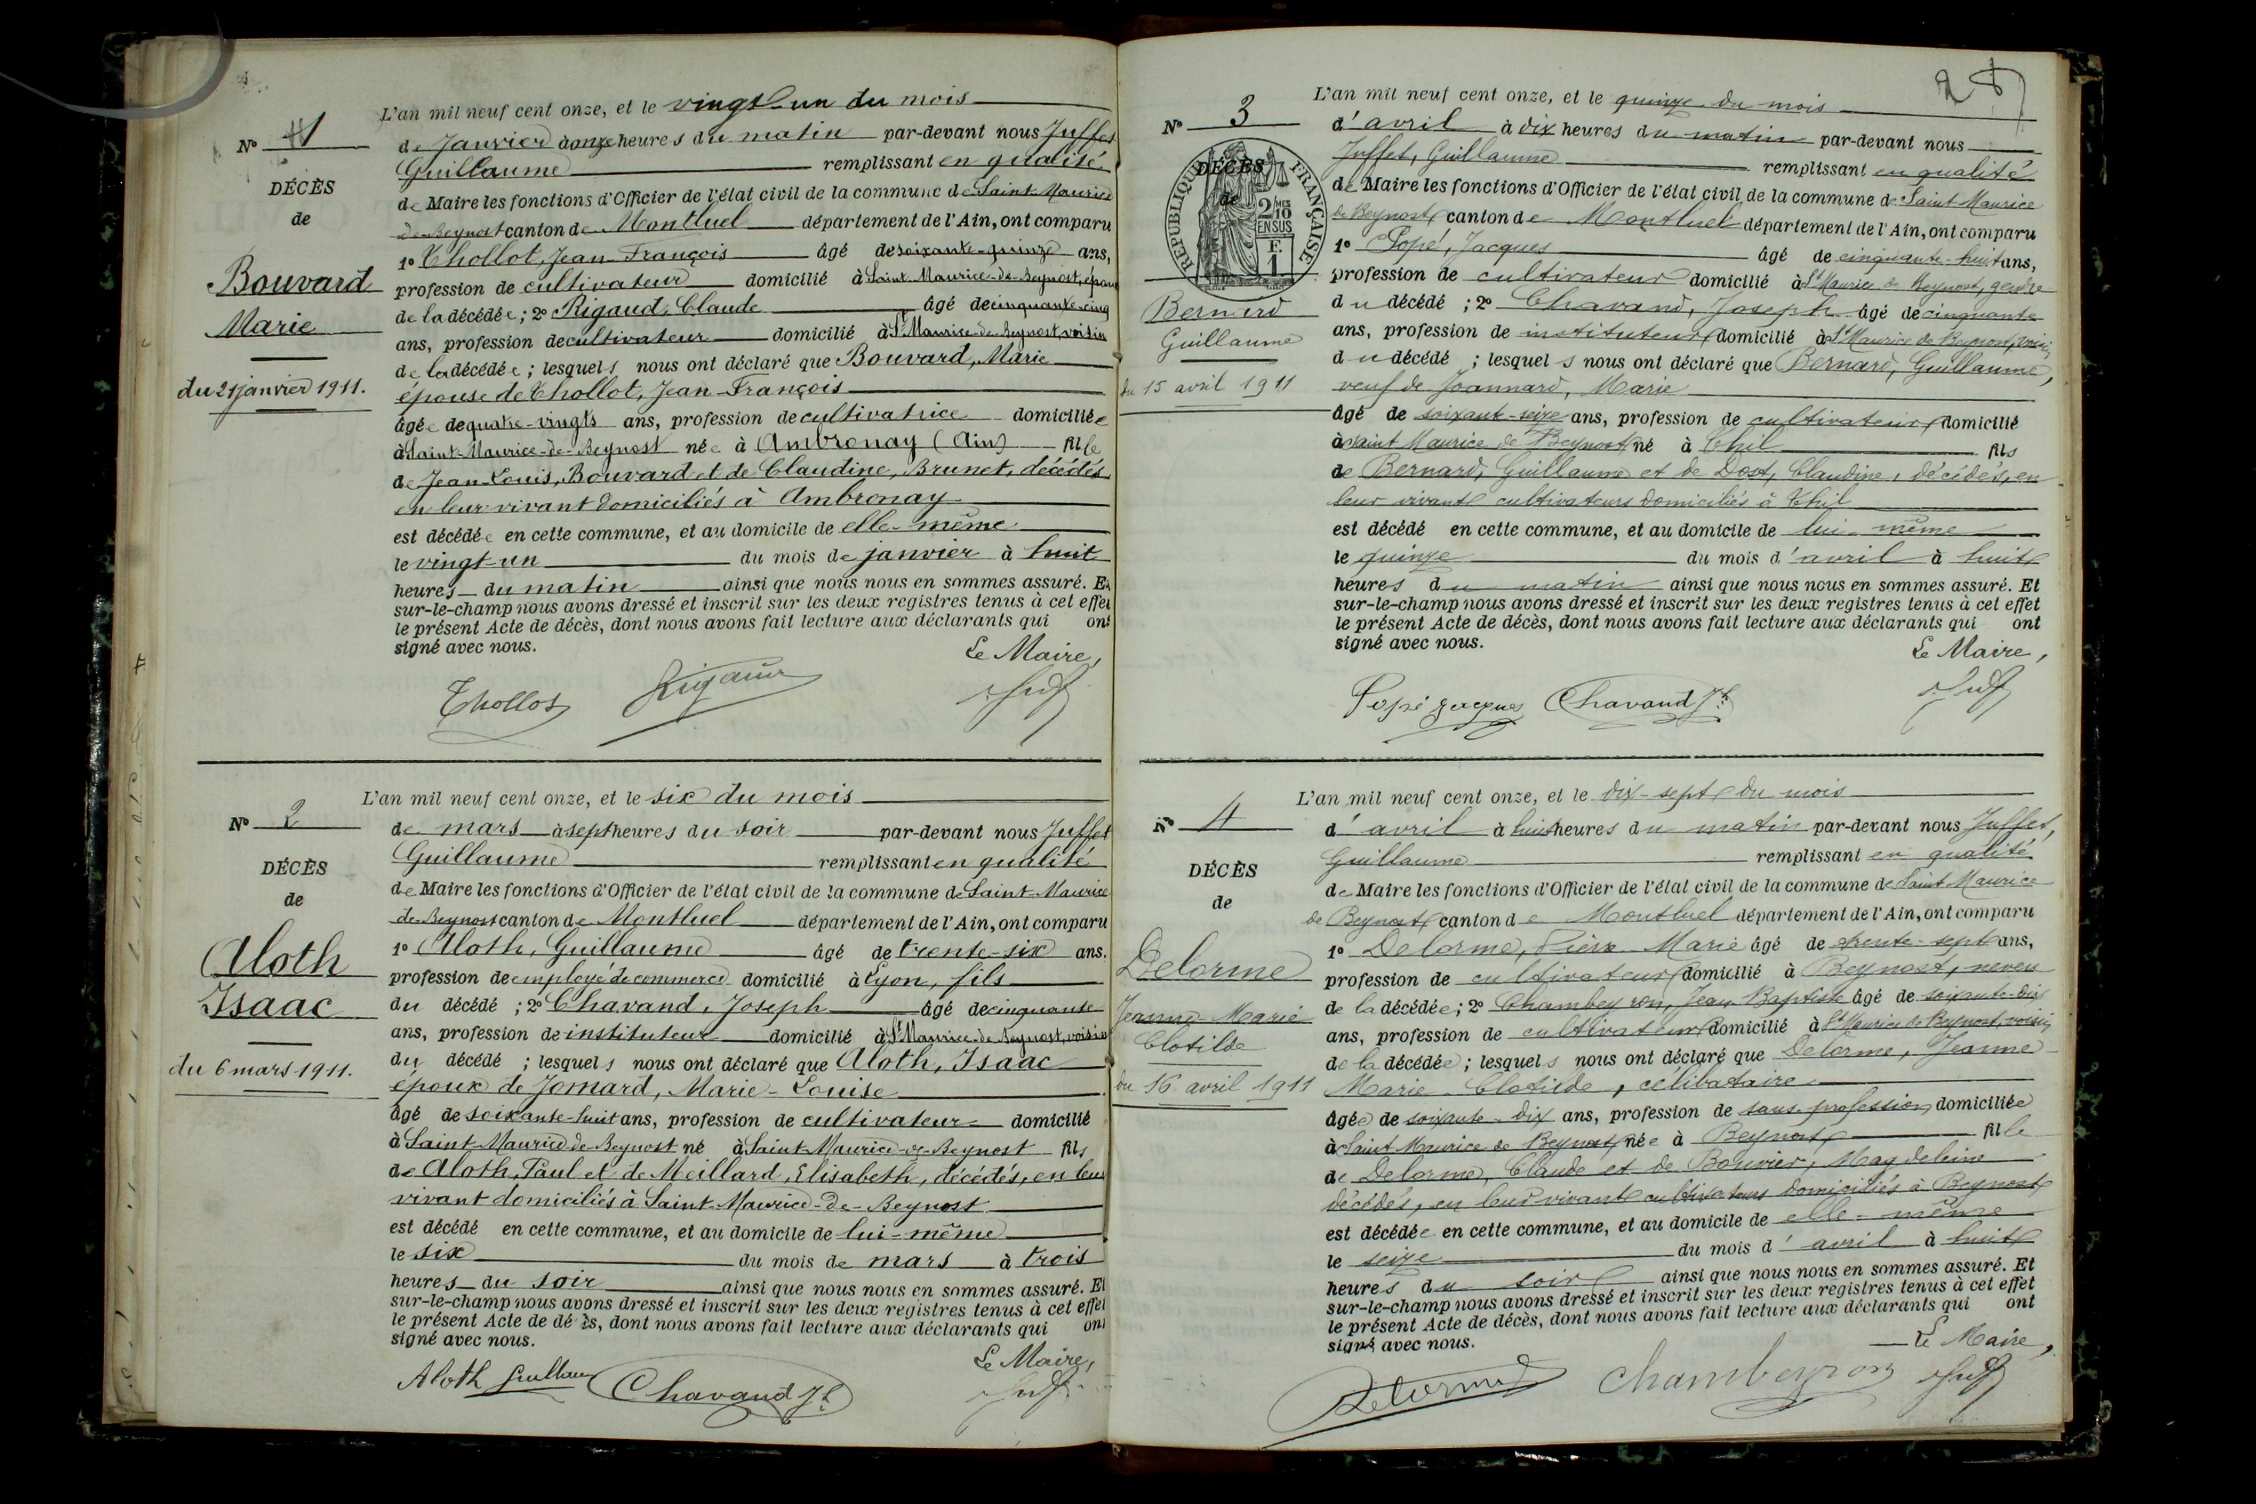 L'an mil neuf cent onze, et le vingt-un du mois
N° 1
de Janvier à onze heures du matin par-devant nous Juffet
Guillaume remplissant en qualité
DÉCÈS
de Maire les fonctions d'Officier de l'état civil de la commune de Saint-Maurice
de
de-Beynost canton de Montluel département de l'Ain, ont comparu
1° Chollot, Jean-François âgé de soixante-quinze ans,
Bouvard
profession de cultivateur domicilié à Saint-Maurice-de-Beynost, époux
de la décédée; 2° Rigaud, Claude âgé de cinquante-cinq
Marie
ans, profession de cultivateur domicilié à St Maurice-de-Beynost, voisin
de la décédée; lesquels nous ont déclaré que Bouvard, Marie
du 21 janvier 1911.
épouse de Chollot, Jean-François
âgée de quatre-vingts ans, profession de cultivatrice domiciliée
à Saint-Maurice-de-Beynost née à Ambronay (Ain) fille
de Jean-Louis, Bouvard et de Claudine, Brunet, décédés
en leur vivant domiciliés à Ambronay
est décédée en cette commune, et au domicile de elle-même
le vingt-un du mois de janvier à huit
heures du matin ainsi que nous nous en sommes assuré. Et
sur-le-champ nous avons dressé et inscrit sur les deux registres tenus à cet effet
le présent Acte de décès, dont nous avons fait lecture aux déclarants qui ont
signé avec nous.
Le Maire,
Thollot Rigaud Juf
L'an mil neuf cent onze, et le six du mois
N° 2
de mars à sept heures du soir par-devant nous Juffet
Guillaume remplissant en qualité
DÉCÈS
de Maire les fonctions d'Officier de l'état civil de la commune de Saint-Maurice
de
de-Beynost canton de Montluel département de l'Ain, ont comparu
1° Aloth, Guillaume âgé de trente-six ans.
Aloth
profession de employé de commerce domicilié à Lyon, fils
Isaac
du décédé; 2° Chavand, Joseph âgé de cinquante
ans, profession de instituteur domicilié à St Maurice-de-Beynost, voisin
du 6 mars 1911.
du décédé; lesquels nous ont déclaré que Aloth, Isaac
époux de Jomard, Marie-Louise
âgé de soixante-huit ans, profession de cultivateur domicilié
à Saint-Maurice-de-Beynost né à Saint-Maurice-de-Beynost fils
de Aloth, Paul et de Meillard, Elisabeth, décédés, en leur
vivant domiciliés à Saint-Maurice-de-Beynost
est décédé en cette commune, et au domicile de lui-même
le six du mois de mars à trois
heures du soir ainsi que nous nous en sommes assuré. Et
sur-le-champ nous avons dressé et inscrit sur les deux registres tenus à cet effet
le présent Acte de décès, dont nous avons fait lecture aux déclarants qui ont
signé avec nous.
Le Maire,
Aloth Chavand Jh Juf
L'an mil neuf cent onze, et le quinze du mois
N° 3
d'avril à dix heures du matin par-devant nous
Juffet, Guillaume remplissant en qualité
DÉCÈS
de
RÉPUBLIQUE FRANÇAISE
2/10 EN SUS
F. 1
de Maire les fonctions d'Officier de l'état civil de la commune de Saint Maurice
de Beynost canton de Montluel département de l'Ain, ont comparu
1° Popé, Jacques âgé de cinquante-huit ans,
profession de cultivateur domicilié à St Maurice de Beynost, gendre
Bernard
du décédé; 2° Chavand, Joseph âgé de cinquante
Guillaume
ans, profession de instituteur domicilié à St Maurice de Beynost, voisin
du décédé; lesquels nous ont déclaré que Bernard, Guillaume,
du 15 avril 1911
veuf de Joannard, Marie
âgé de soixante-seize ans, profession de cultivateur domicilié
à Saint Maurice de Beynost né à Thil fils
de Bernard, Guillaume et de Dost, Claudine, décédés, en
leur vivant cultivateurs domiciliés à Thil
est décédé en cette commune, et au domicile de lui-même
le quinze du mois d'avril à huit
heures du matin ainsi que nous nous en sommes assuré. Et
sur-le-champ nous avons dressé et inscrit sur les deux registres tenus à cet effet
le présent Acte de décès, dont nous avons fait lecture aux déclarants qui ont
signé avec nous.
Le Maire,
Popé Jacques Chavand Jh Juf
L'an mil neuf cent onze, et le dix-sept du mois
N° 4
d'avril à huit heures du matin par-devant nous Juffet,
Guillaume remplissant en qualité
DÉCÈS
de Maire les fonctions d'Officier de l'état civil de la commune de Saint Maurice
de
de Beynost canton de Montluel département de l'Ain, ont comparu
1° Delorme, Pierre Marie âgé de trente-sept ans,
Delorme
profession de cultivateur domicilié à Beynost, neveu
Jeanne Marie
de la décédée; 2° Chambeyron, Jean Baptiste âgé de soixante-dix
Clotilde
ans, profession de cultivateur domicilié à St Maurice de Beynost, voisin
de la décédée; lesquels nous ont déclaré que Delorme, Jeanne
du 16 avril 1911
Marie Clotilde, célibataire
âgée de soixante-dix ans, profession de sans profession domiciliée
à Saint Maurice de Beynost née à Beynost fille
de Delorme, Claude et de Bouvier, Magdeleine
décédés, en leur vivant cultivateurs domiciliés à Beynost
est décédée en cette commune, et au domicile de elle-même
le seize du mois d'avril à huit
heures du soir ainsi que nous nous en sommes assuré. Et
sur-le-champ nous avons dressé et inscrit sur les deux registres tenus à cet effet
le présent Acte de décès, dont nous avons fait lecture aux déclarants qui ont
signé avec nous.
Le Maire,
Delorme Chambeyron Juf